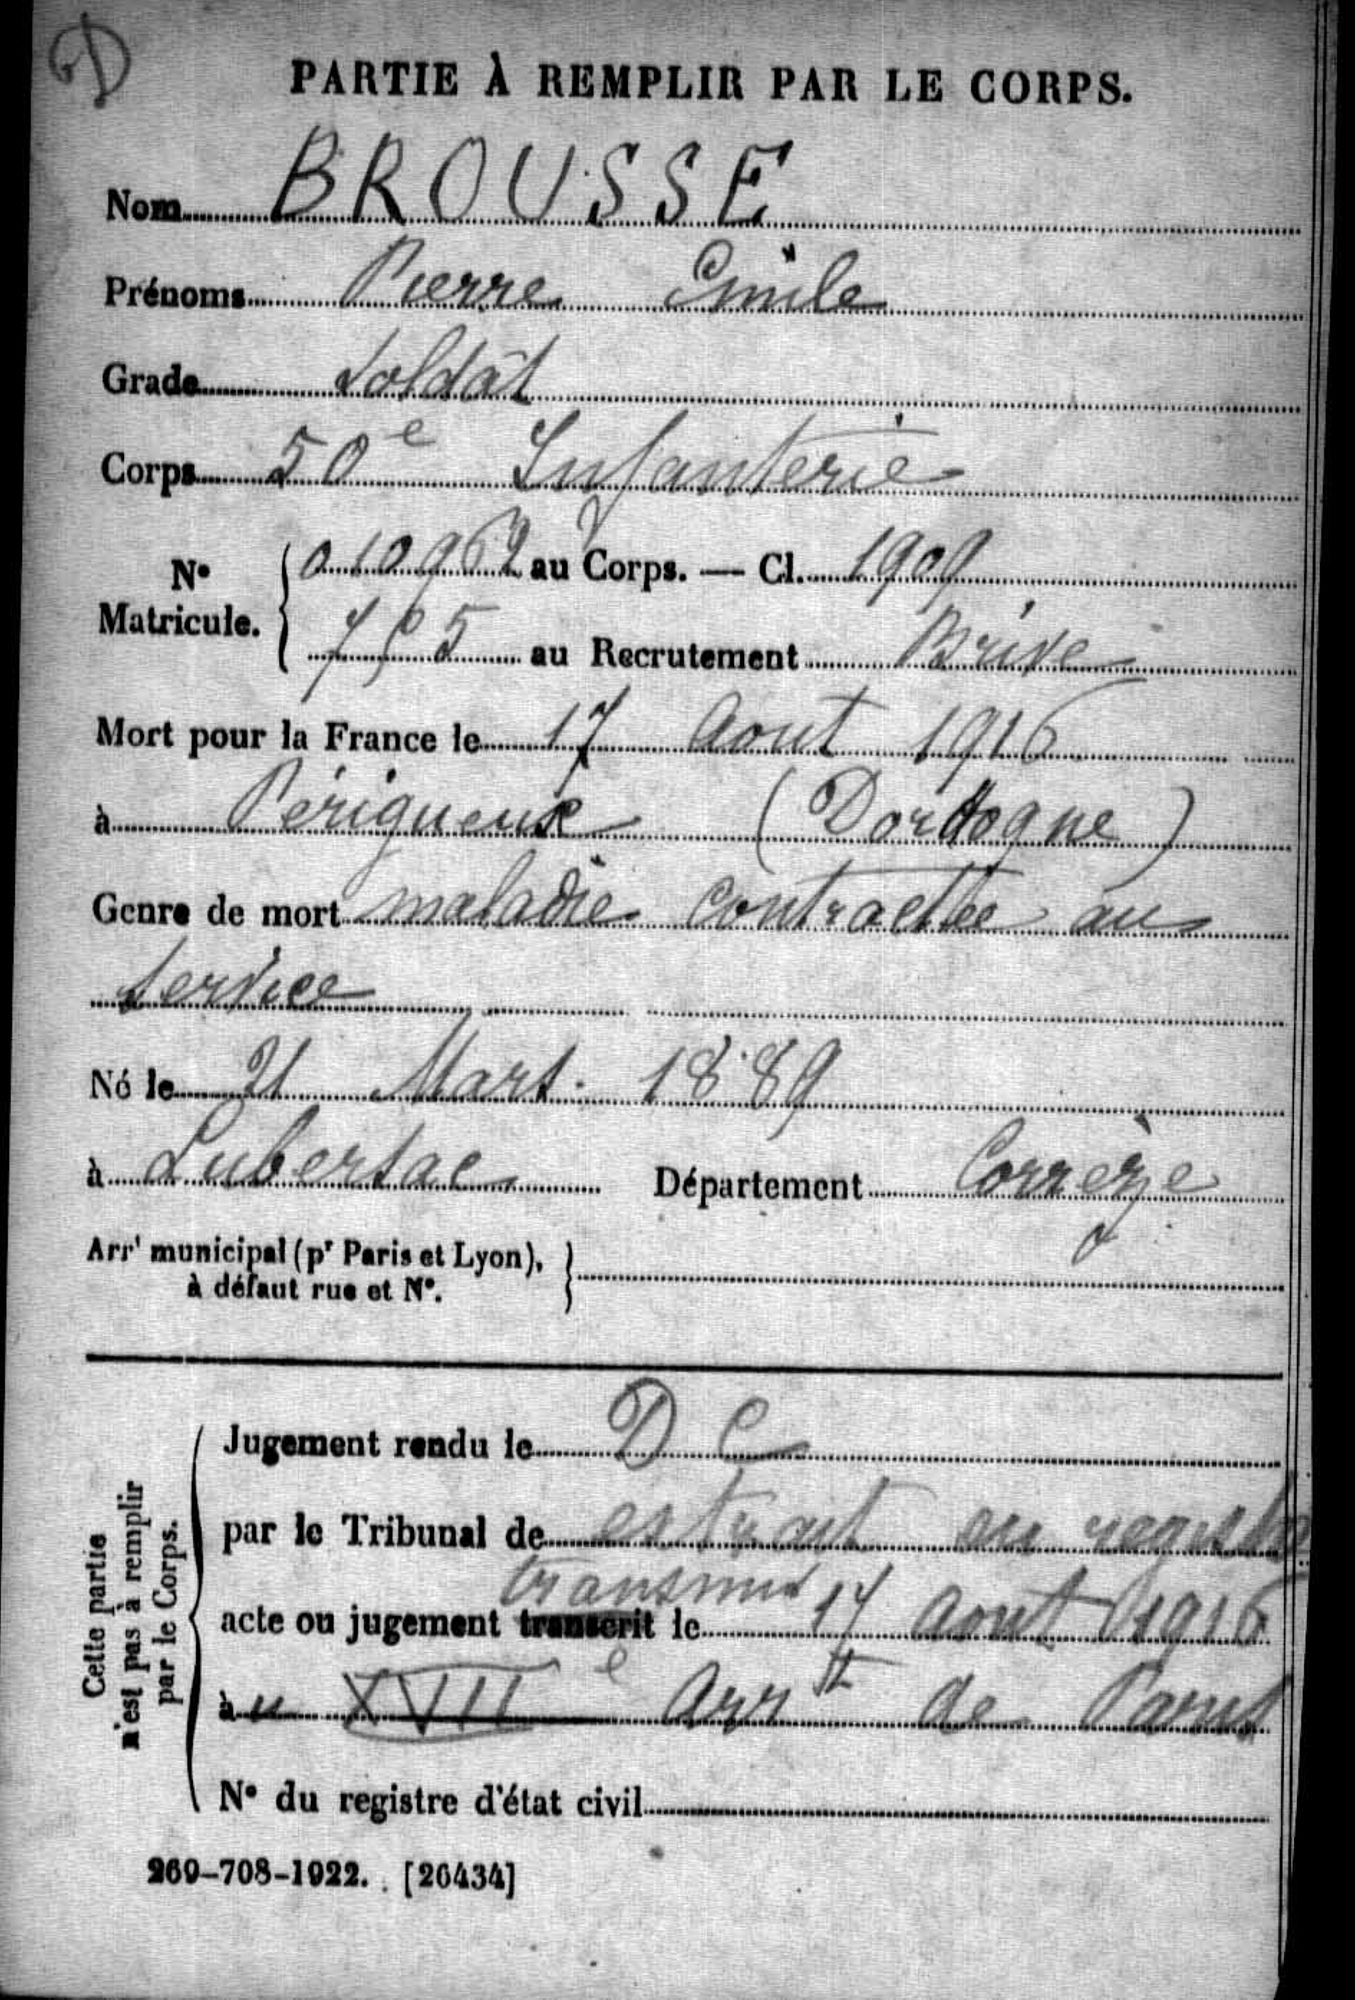 D
PARTIE À REMPLIR PAR LE CORPS.
Nom BROUSSE
Prénoms Pierre Emile
Grade Soldat
Corps 50e Infanterie
N° Matricule. 010962 au Corps. — Cl. 1909
au Recrutement Brive
Mort pour la France le 17 Aout 1916
à Périgueux (Dordogne)
Genre de mort maladie contractée au
service
Né le 21 Mars 1889
à Lubersac Département Corrèze
Arrt municipal (pr Paris et Lyon),
à défaut rue et N°.
Cette partie
n'est pas à remplir
par le Corps.
Jugement rendu le D C
par le Tribunal de extrait au registre
transmis
acte ou jugement transcrit le 17 Aout 1916
à u XVIIe Arrt de Paris
N° du registre d'état civil
269-708-1922. [26434]